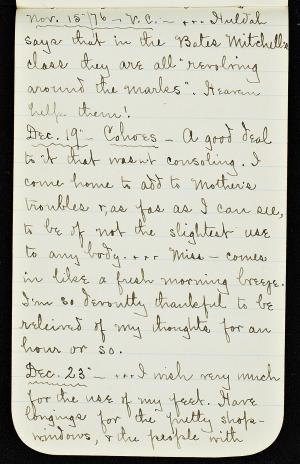 Nov. 15-'76 - V. C. - ... Huldah
says that in the Bates Mitchell
class they are all "revolving
around the marks". Heaven
help them!
Dec. 19 - Cohoes - A good deal
to it that wasn't consoling. I
come home to add to Mother's
troubles &, as far as I can see,
to be of not the slightest use
to any body.... Miss - comes
in like a fresh morning breeze.
I'm so devoutly thankful to be
releived of my thoughts for an
hour or so.
Dec. 23 - ...I wish very much
for the use of my feet. Have
longings for the pretty shop-
windows, & the people with